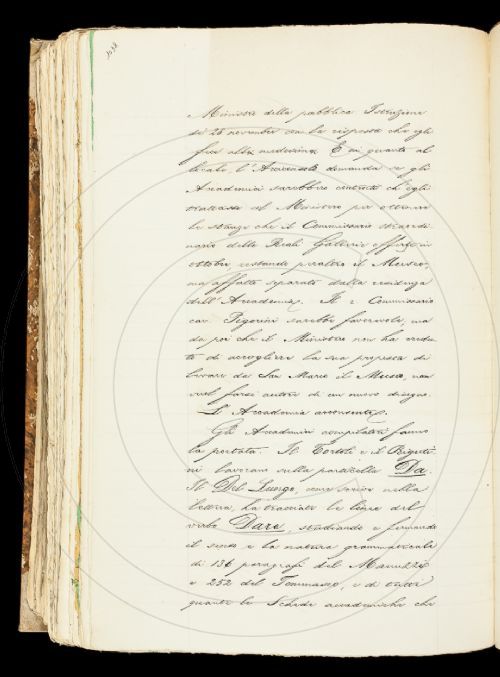 Ministro della pubblica Istruzione
di 26 novembre con la risposta che egli
fece alla medesima. E in quanto al
locale l'Arciconsolo domanda se gli
Accademici sarebbero contenti ch'egli
trattasse col Ministero per ottenere
le stanze che il Commissario straordi-
nario delle Reali Gallerie offerse in
ottobre restando peraltro il Museo,
ma affatto separato dalla residenza
dell'Accademia. Il r. Commissario
cav. Pigorini sarebbe favorevole, ma
da poi che il Ministero non ha credu-
to di accogliere la sua proposta di
levare da San Marco il Museo, non
vuol farsi autore di un nuovo disegno.
L'Accademia acconsente.
Gli Accademici compilatori fanno
la portata. Il Tortoli e il Rigutini
lavorano sulla particella Da.
Il Del Lungo, come scrive nella
lettera, ha tracciate le linee del
verbo Dare, studiando e fermando
il senso e la natura grammaticale
di 136 paragrafi del Manuzzi
e 252 del Tommaseo, e di tutte
quante le Schede accademiche che